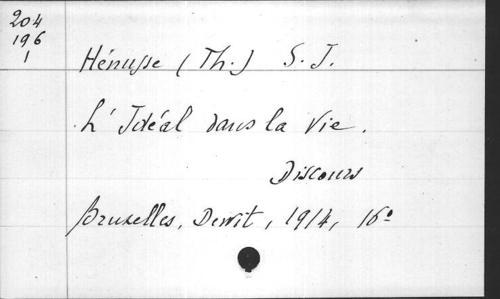 204
196
1
Hénusse (Th.) S. J.
L'Idéal dans la Vie.
Discours
Bruxelles, Dewit, 1914, 16°